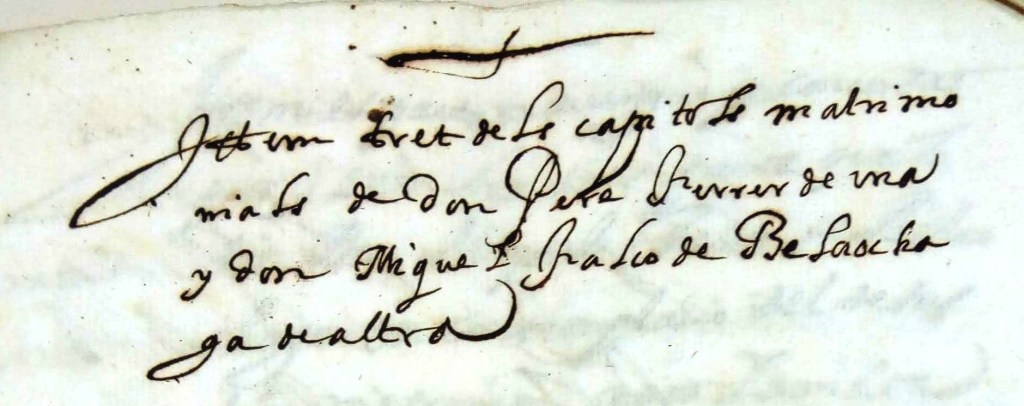 Ittem tret dels capitols matrimo
nials de don Pere Ferrer de una
y don Miquel Falco de Belaocha
ga de altra